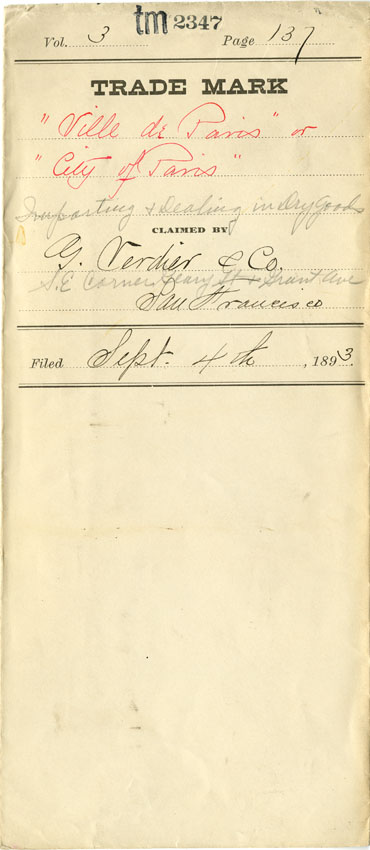 tm 2347
Vol. 3 Page 137
TRADE MARK
"Ville de Paris" or
"City of Paris"
Importing & Dealing in Dry Goods
CLAIMED BY
G. Verdier & Co.
S.E. Corner Geary St & Grant Ave
San Francisco
Filed Sept. 4th, 1893.